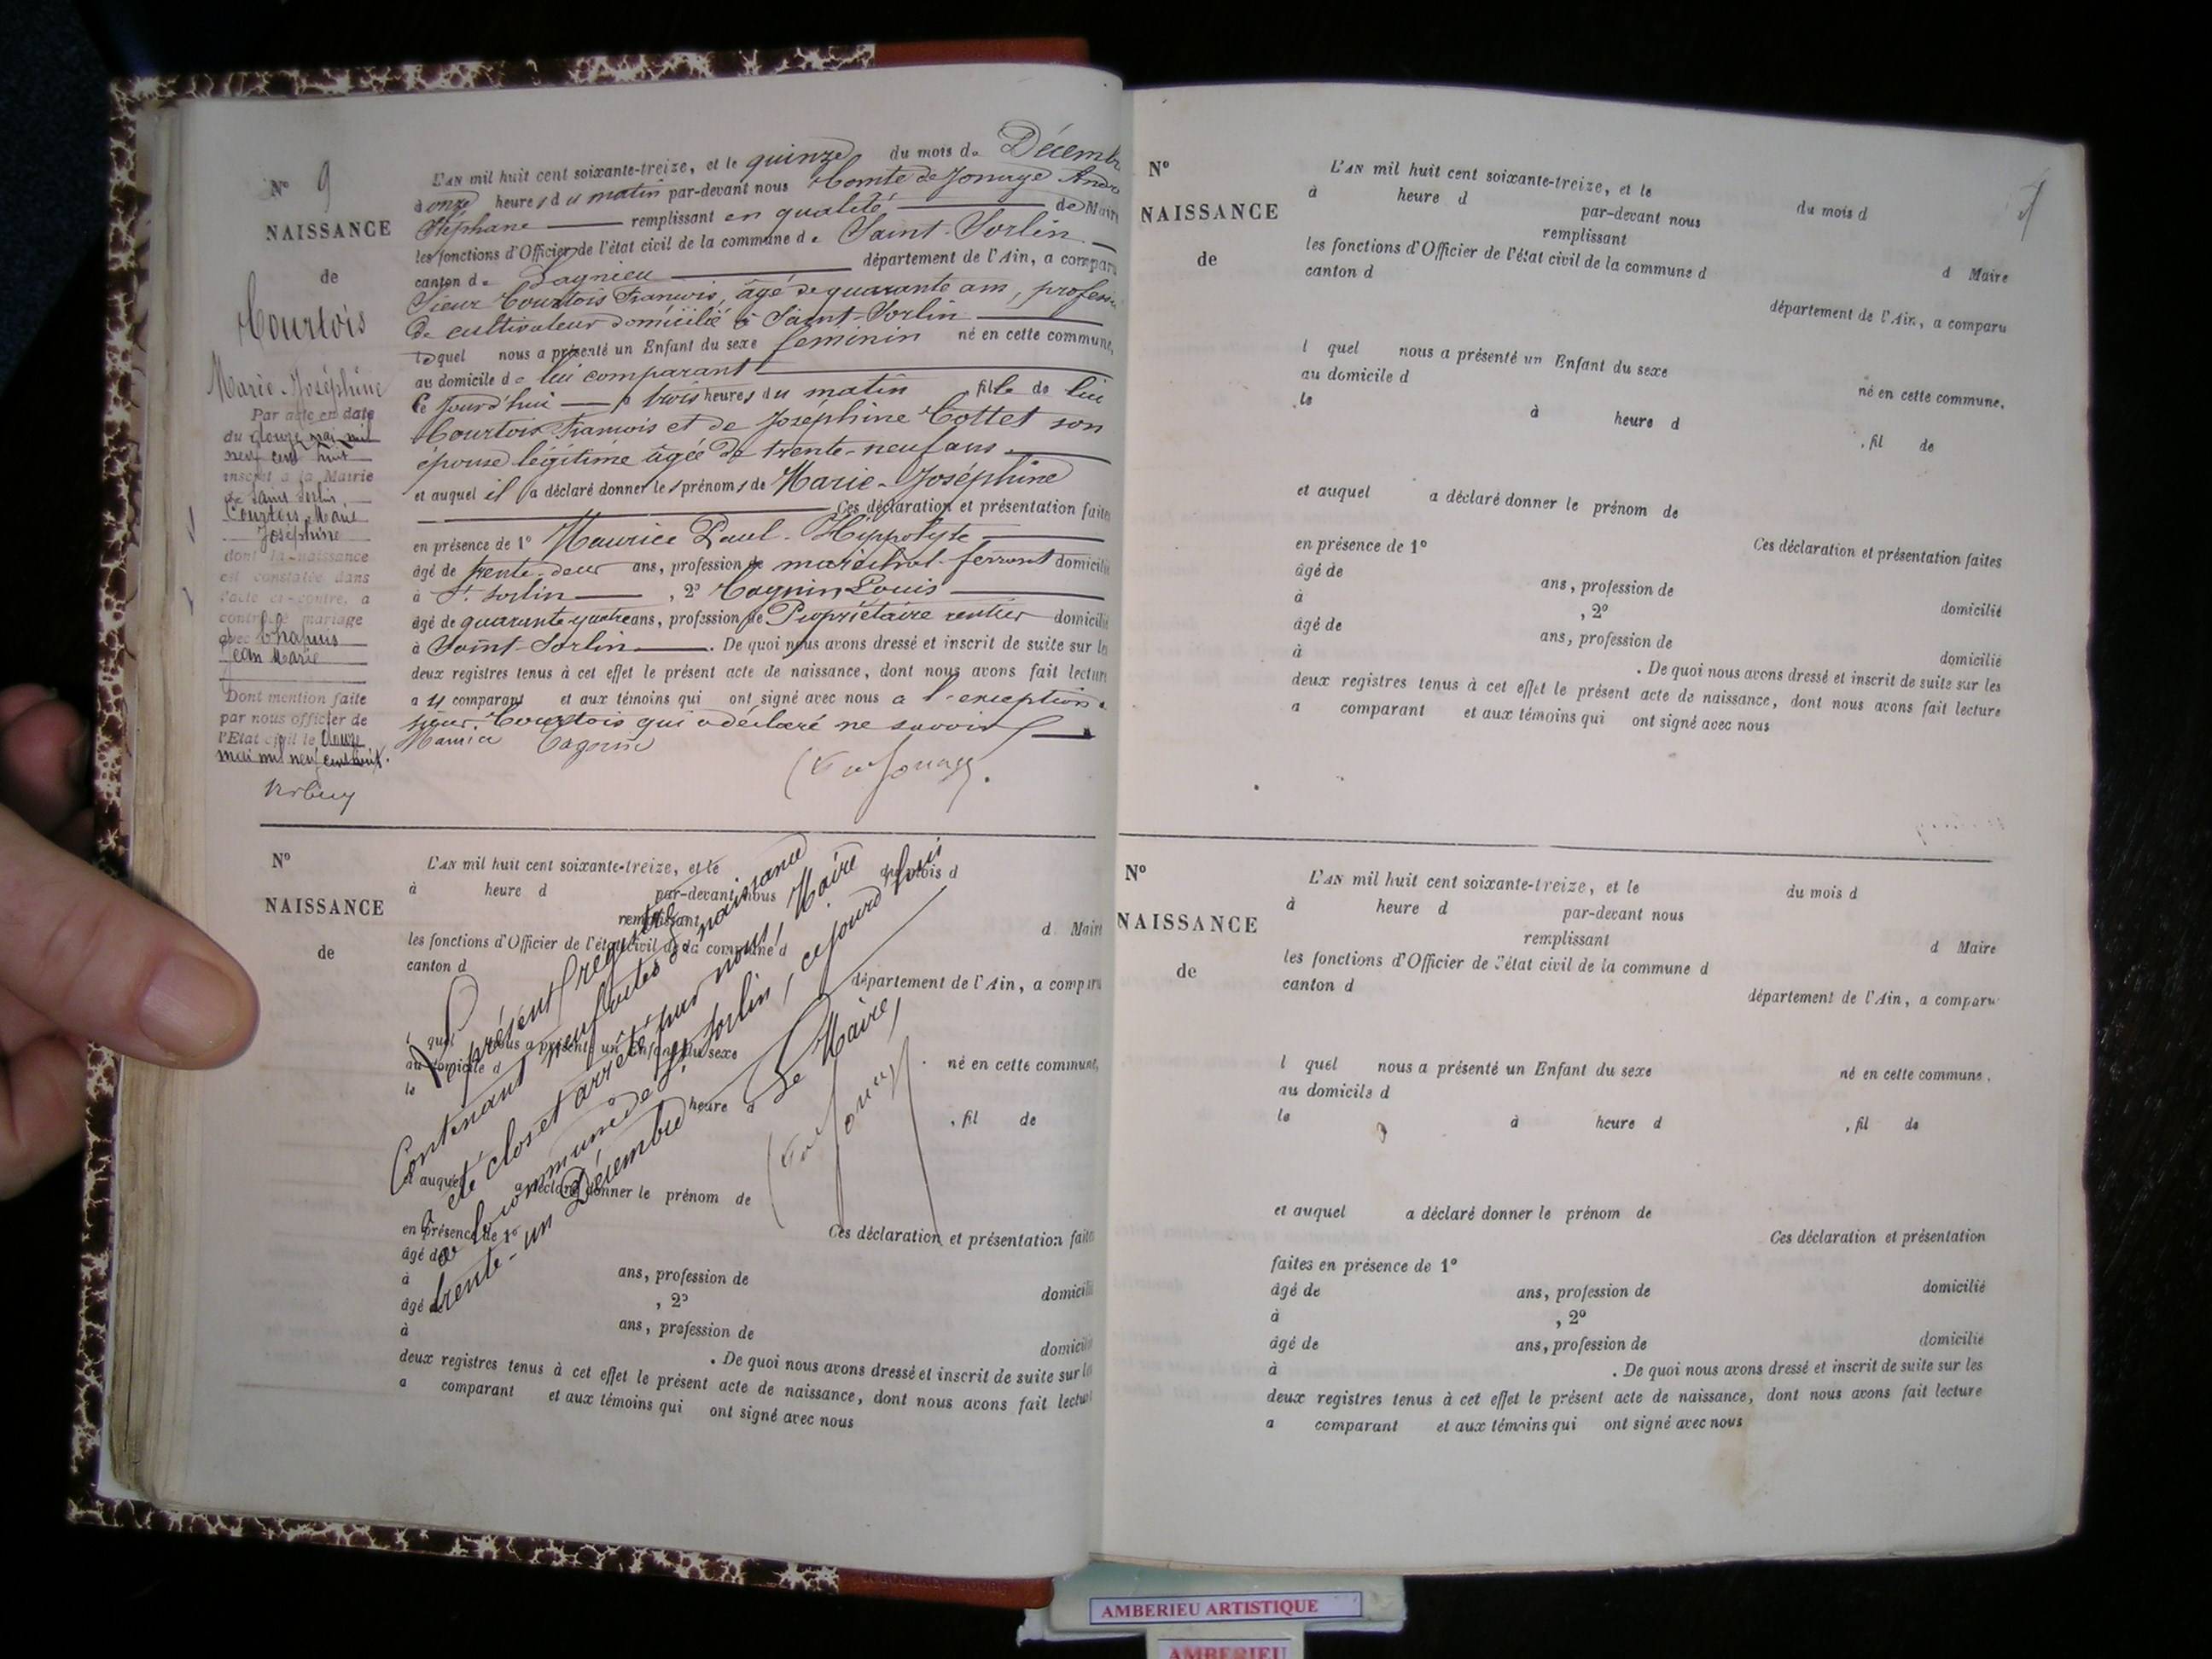 N° 9
NAISSANCE
de
Courtois
Marie-Joséphine
Par acte en date
du douze mai mil
neuf cent huit
inscrit à la Mairie
de Saint Sorlin
Courtois Marie
Joséphine
dont la naissance
est constatée dans
l'acte ci-contre, a
contracté mariage
avec Chapuis
Jean Marie
Dont mention faite
par nous officier de
l'Etat civil le douze
mai mil neuf cent huit.
L'AN mil huit cent soixante-treize, et le quinze du mois de Décembre
à onze heures du matin par-devant nous Comte de Jonage André
Stéphane remplissant en qualité de Maire
les fonctions d'Officier de l'état civil de la commune de Saint-Sorlin
canton de Lagnieu département de l'Ain, a comparu
Sieur Courtois François, âgé de quarante ans, profession
de cultivateur domicilié à Saint-Sorlin
lequel nous a présenté un Enfant du sexe féminin né en cette commune,
au domicile de lui comparant
ce jourd'hui à trois heures du matin fille de lui
Courtois François et de Joséphine Cottet son
épouse légitime âgée de trente-neuf ans
et auquel il a déclaré donner les prénoms de Marie-Joséphine
Ces déclaration et présentation faites
en présence de 1° Maurice Paul-Hippolyte
âgé de trente-deux ans, profession de maréchal-ferrant domicilié
à St Sorlin , 2° Cagnin Louis
âgé de quarante-quatre ans, profession de Propriétaire rentier domicilié
à Saint-Sorlin . De quoi nous avons dressé et inscrit de suite sur les
deux registres tenus à cet effet le présent acte de naissance, dont nous avons fait lecture
au comparant et aux témoins qui ont signé avec nous à l'exception du
sieur Courtois qui a déclaré ne savoir
Maurice Cagnin
Cte de Jonage
N°
NAISSANCE
de
L'AN mil huit cent soixante-treize, et le du mois d
à heure d par-devant nous
remplissant d Maire
les fonctions d'Officier de l'état civil de la commune d
canton d département de l'Ain, a comparu
l quel nous a présenté un Enfant du sexe né en cette commune,
au domicile d
le heure d , fil de
et auquel a déclaré donner le prénom de
Ces déclaration et présentation faites
en présence de 1°
âgé de ans, profession de domicilié
à , 2°
âgé de ans, profession de domicilié
à . De quoi nous avons dressé et inscrit de suite sur les
deux registres tenus à cet effet le présent acte de naissance, dont nous avons fait lecture
a comparant et aux témoins qui ont signé avec nous
Le présent registre
Contenant neuf actes de naissance
a été clos et arrêté par nous, Maire
de la commune de St Sorlin, ce jourd'hui
trente-un Décembre
Le Maire,
Cte de Jonage
N°
NAISSANCE
de
L'AN mil huit cent soixante-treize, et le du mois d
à heure d par-devant nous
remplissant d Maire
les fonctions d'Officier de l'état civil de la commune d
canton d département de l'Ain, a comparu
l quel nous a présenté un Enfant du sexe né en cette commune,
au domicile d
le à heure d , fil de
et auquel a déclaré donner le prénom de
Ces déclaration et présentation faites
en présence de 1°
âgé de ans, profession de domicilié
à , 2°
âgé de ans, profession de domicilié
à . De quoi nous avons dressé et inscrit de suite sur les
deux registres tenus à cet effet le présent acte de naissance, dont nous avons fait lecture
a comparant et aux témoins qui ont signé avec nous
N°
NAISSANCE
de
L'AN mil huit cent soixante-treize, et le du mois d
à heure d par-devant nous
remplissant d Maire
les fonctions d'Officier de l'état civil de la commune d
canton d département de l'Ain, a comparu
l quel nous a présenté un Enfant du sexe né en cette commune.
au domicile d
le à heure d , fil de
et auquel a déclaré donner le prénom de
Ces déclaration et présentation
faites en présence de 1°
âgé de ans, profession de domicilié
à , 2°
âgé de ans, profession de domicilié
à . De quoi nous avons dressé et inscrit de suite sur les
deux registres tenus à cet effet le présent acte de naissance, dont nous avons fait lecture
a comparant et aux témoins qui ont signé avec nous
AMBERIEU ARTISTIQUE
AMBERIEU